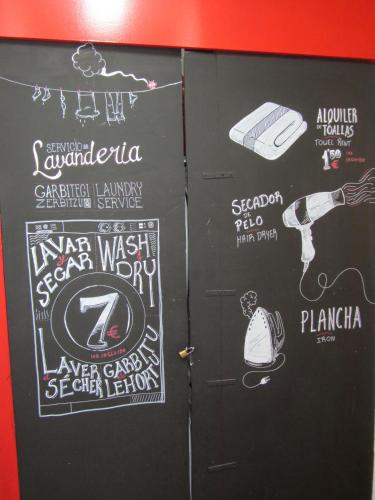 SERVICIO DE
Lavanderia
GARBITEGI
ZERBITZUA
LAUNDRY
SERVICE
LAVAR
Y
SEGAR
WASH
DRY
7€
IVA INCLUIDO
LAVER
SÉCHER
GARBITU
LEHORTU
ALQUILER
DE TOALLAS
TOWEL RENT
1'50€
IVA INCLUIDO
SECADOR
DE
PELO
HAIR DRYER
PLANCHA
IRON